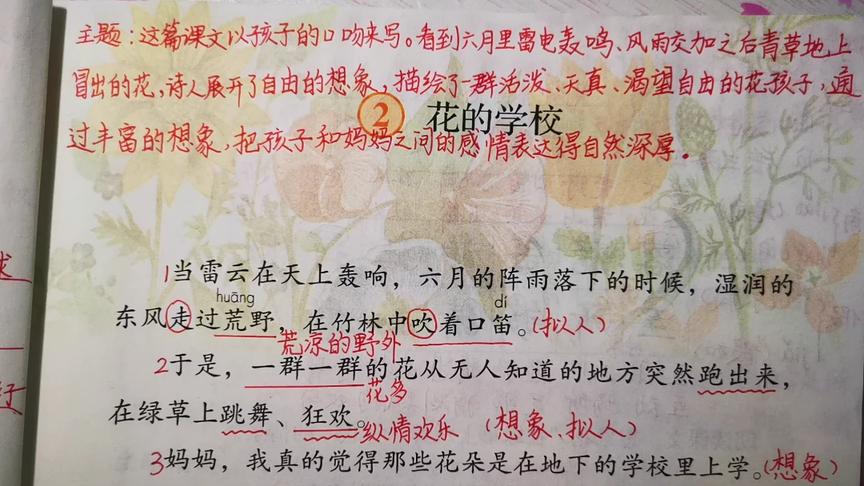 主题:这篇课文以孩子的口吻来写。看到六月里雷电轰鸣、风雨交加之后青草地上
冒出的花,诗人展开了自由的想象,描绘了一群活泼、天真、渴望自由的花孩子,通
② 花的学校
过丰富的想象,把孩子和妈妈之间的感情表达得自然深厚。
1当雷云在天上轰响,六月的阵雨落下的时候,湿润的
huāng dí
东风走过荒野,在竹林中吹着口笛。(拟人)
荒凉的野外
2于是,一群一群的花从无人知道的地方突然跑出来,
花多
在绿草上跳舞、狂欢。纵情欢乐 (想象、拟人)
3妈妈,我真的觉得那些花朵是在地下的学校里上学。(想象)